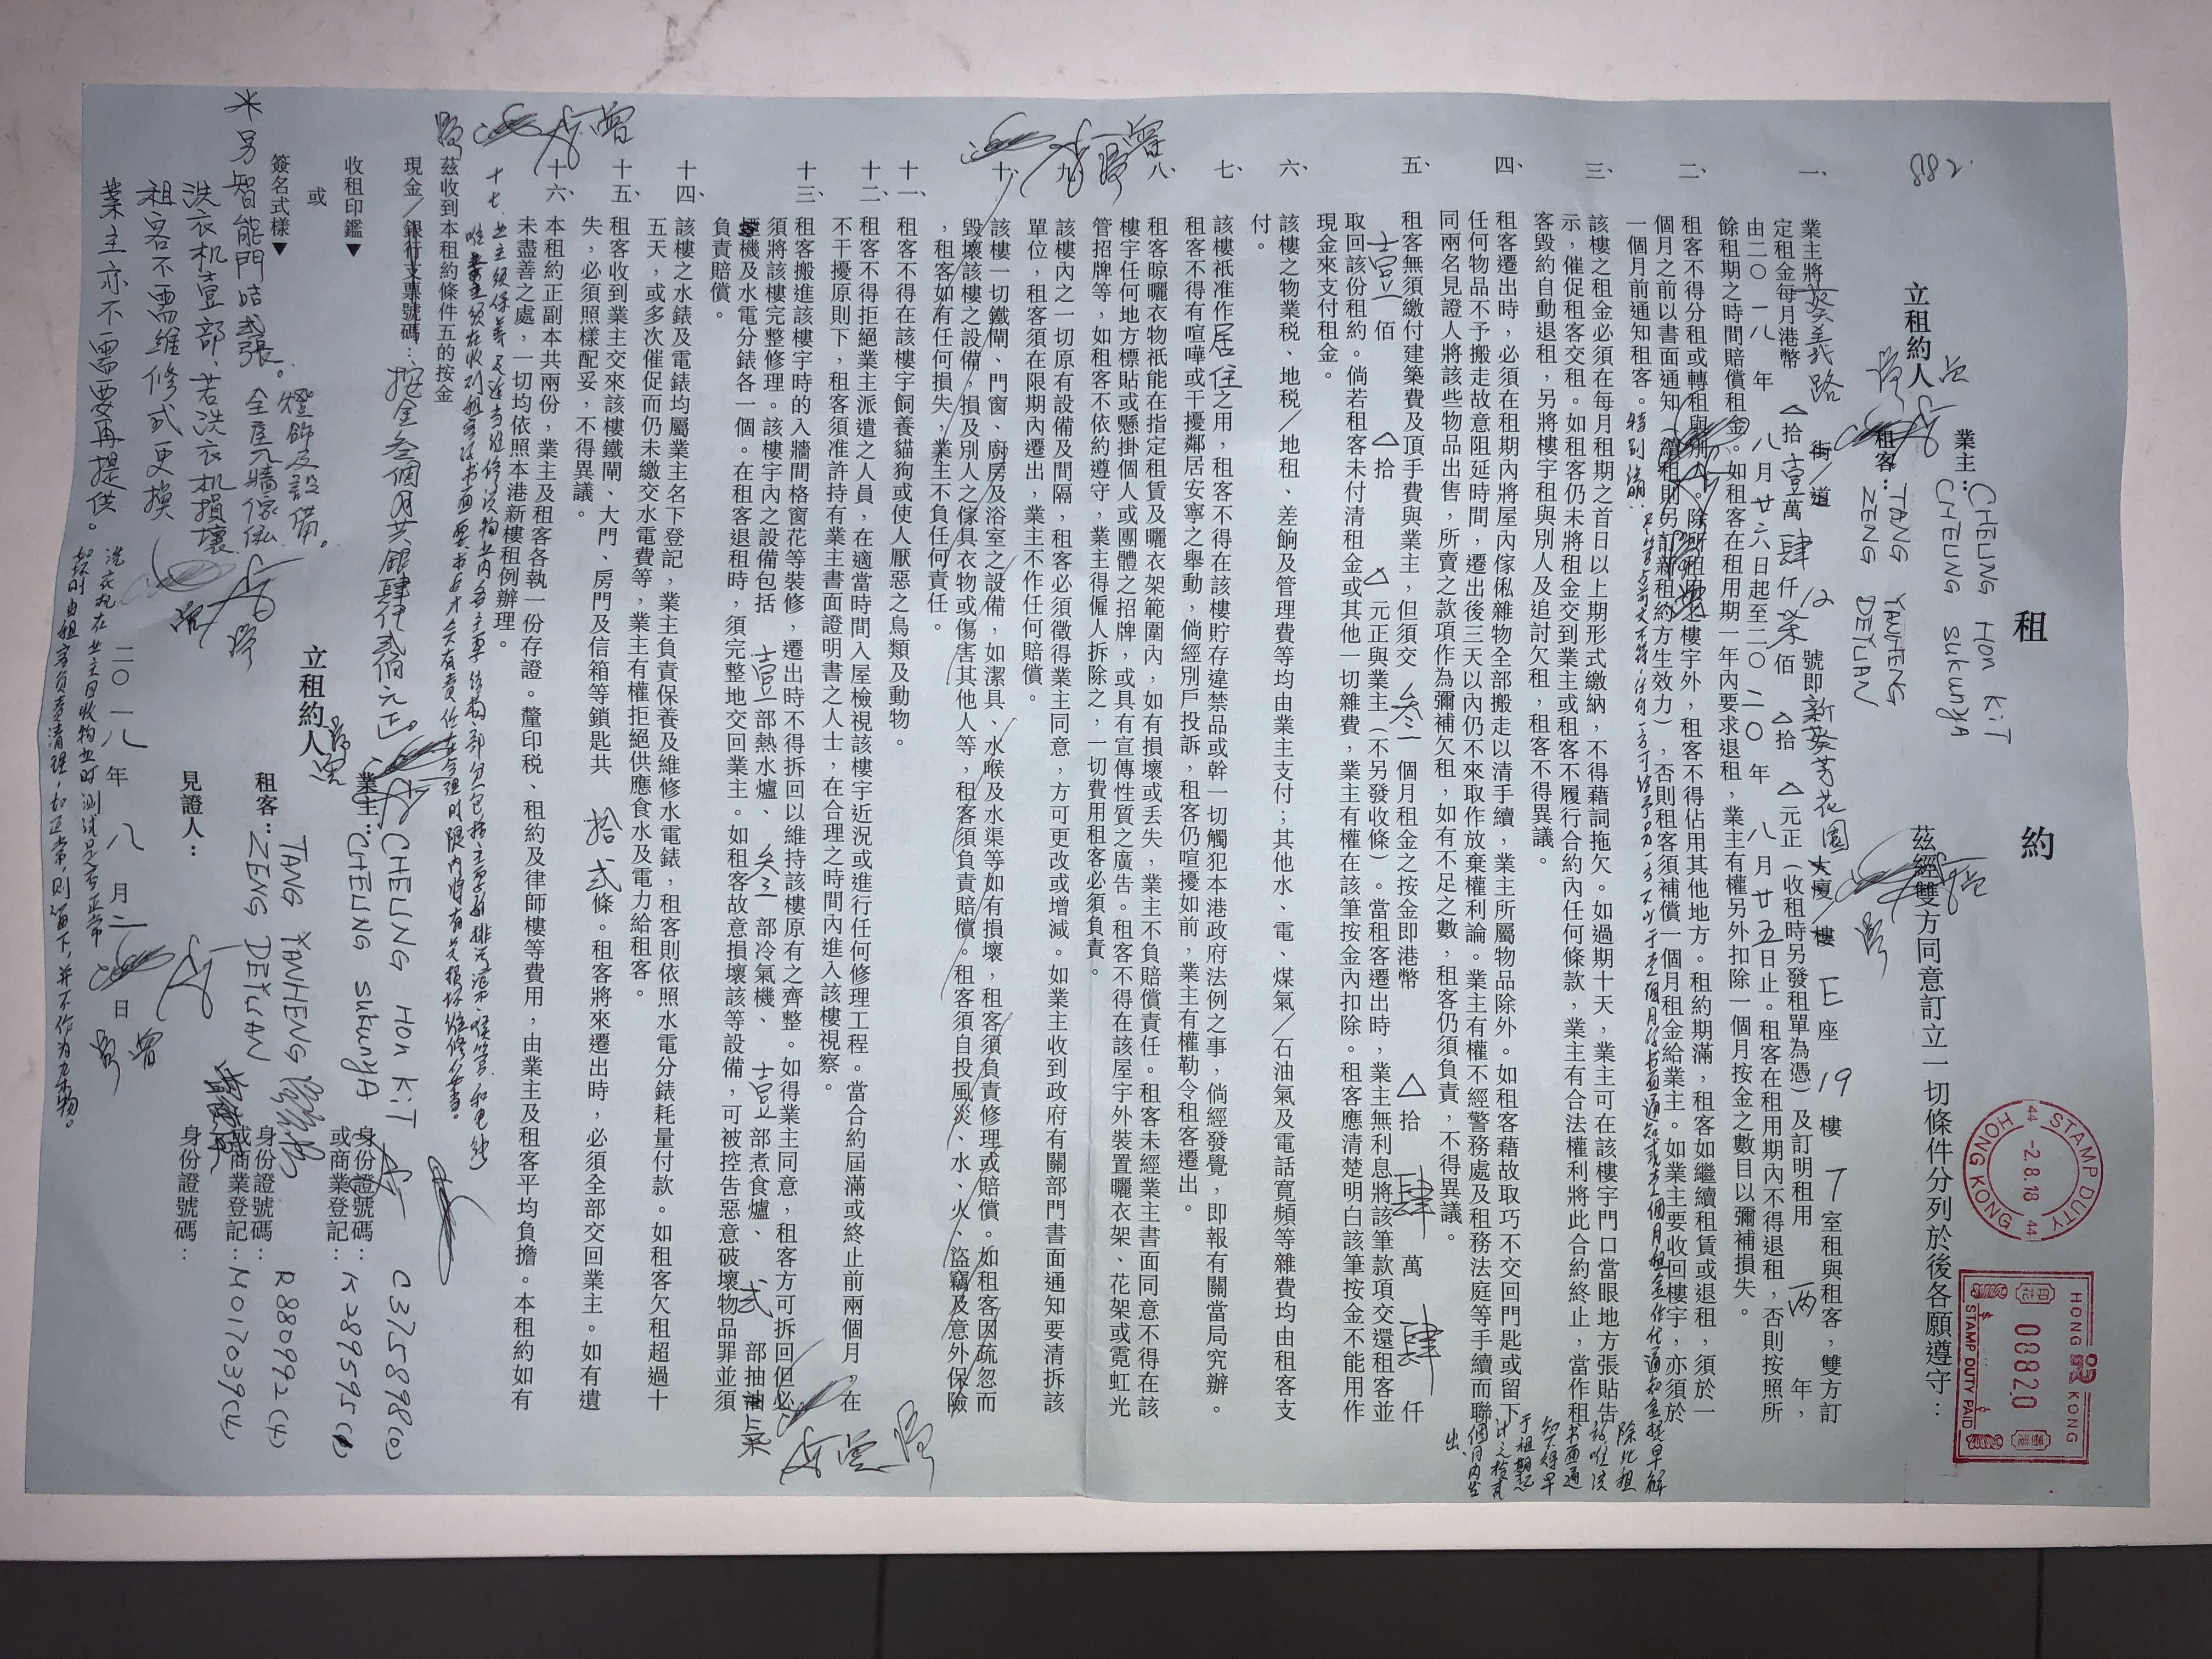 882.
租 約
立租約人
業主：CHEUNG HON KIT
CHEUNG SUKUNYA
租客：TANG YANHENG
ZENG DEYUAN
茲經雙方同意訂立一切條件分列於後各願遵守：
STAMP DUTY
44 -2.8.18 44
HONG KONG
HONG KONG
08820
STAMP DUTY PAID
一、業主將葵義路 街/道 12 號即新葵芳花園大廈/樓 E 座 19 樓 7 室租與租客，雙方訂
定租金每月港幣 △拾壹萬肆仟柒佰 △拾 △元正（收租時另發租單為憑）及訂明租用 两 年，
由二〇一八年 八月廿六日起至二〇二〇年 八月廿五日止。租客在租用期內不得退租，否則按照所
餘租期之時間賠償租金。如租客在租用期一年內要求退租，業主有權另外扣除一個月按金之數目以彌補損失。
二、租客不得分租或轉租與別人。除所租與之樓宇外，租客不得佔用其他地方。租約期滿，租客如繼續租賃或退租，須於一
個月之前以書面通知（續租則另訂新租約方生效力），否則租客須補償一個月租金給業主。如業主要收回樓宇，亦須於
一個月前通知租客。特別註明：
三、該樓之租金必須在每月租期之首日以上期形式繳納，不得藉詞拖欠。如過期十天，業主可在該樓宇門口當眼地方張貼告
示，催促租客交租。如租客仍未將租金交到業主或租客不履行合約內任何條款，業主有合法權利將此合約終止，當作租
客毀約自動退租，另將樓宇租與別人及追討欠租，租客不得異議。
四、租客遷出時，必須在租期內將屋內傢俬雜物全部搬走以清手續，業主所屬物品除外。如租客藉故取巧不交回門匙或留下
任何物品不予搬走故意阻延時間，遷出後三天以內仍不來取作放棄權利論。業主有權不經警務處及租務法庭等手續而聯
同兩名見證人將該些物品出售，所賣之款項作為彌補欠租，如有不足之數，租客仍須負責，不得異議。
五、租客無須繳付建築費及頂手費與業主，但須交 叁 個月租金之按金即港幣 △ 拾 肆 萬 肆 仟
壹 佰 △ 拾 △ 元正與業主（不另發收條）。當租客遷出時，業主無利息將該筆款項交還租客並
取回該份租約。倘若租客未付清租金或其他一切雜費，業主有權在該筆按金內扣除。租客應清楚明白該筆按金不能用作
現金來支付租金。
六、該樓之物業税、地税/地租、差餉及管理費等均由業主支付；其他水、電、煤氣/石油氣及電話寬頻等雜費均由租客支
付。
七、該樓祇准作居住之用，租客不得在該樓貯存違禁品或幹一切觸犯本港政府法例之事，倘經發覺，即報有關當局究辦。
租客不得有喧嘩或干擾鄰居安寧之舉動，倘經別戶投訴，租客仍喧擾如前，業主有權勒令租客遷出。
八、租客晾曬衣物祇能在指定租賃及曬衣架範圍內，如有損壞或丢失，業主不負賠償責任。租客未經業主書面同意不得在該
樓宇任何地方標貼或懸掛個人或團體之招牌，或具有宣傳性質之廣告。租客不得在該屋宇外裝置曬衣架、花架或霓虹光
管招牌等，如租客不依約遵守，業主得僱人拆除之，一切費用租客必須負責。
九、該樓內之一切原有設備及間隔，租客必須徵得業主同意，方可更改或增減。如業主收到政府有關部門書面通知要清拆該
單位，租客須在限期內遷出，業主不作任何賠償。
十、該樓一切鐵閘、門窗、廚房及浴室之設備，如潔具、水喉及水渠等如有損壞，租客須負責修理或賠償。如租客因疏忽而
毀壞該樓之設備，損及別人之傢具衣物或傷害其他人等，租客須負責賠償。租客須自投風災、水、火、盜竊及意外保險
，租客如有任何損失，業主不負任何責任。
十一、租客不得在該樓宇飼養貓狗或使人厭惡之鳥類及動物。
十二、租客不得拒絕業主派遣之人員，在適當時間入屋檢視該樓宇近況或進行任何修理工程。當合約屆滿或終止前兩個月，在
不干擾原則下，租客須准許持有業主書面證明書之人士，在合理之時間內進入該樓視察。
十三、租客搬進該樓宇時的入牆間格窗花等裝修，遷出時不得拆回以維持該樓原有之齊整。如得業主同意，租客方可拆回但必
須將該樓完整修理。該樓宇內之設備包括 壹 部熱水爐、叁 部冷氣機、壹 部煮食爐、弍 部抽氣
機及水電分錶各一個。在租客退租時，須完整地交回業主。如租客故意損壞該等設備，可被控告惡意破壞物品罪並須
負責賠償。
十四、該樓之水錶及電錶均屬業主名下登記，業主負責保養及維修水電錶，租客則依照水電分錶耗量付款。如租客欠租超過十
五天，或多次催促而仍未繳交水電費等，業主有權拒絕供應食水及電力給租客。
十五、租客收到業主交來該樓鐵閘、大門、房門及信箱等鎖匙共 拾弍 條。租客將來遷出時，必須全部交回業主。如有遺
失，必須照樣配妥，不得異議。
十六、本租約正副本共兩份，業主及租客各執一份存證。釐印税、租約及律師樓等費用，由業主及租客平均負擔。本租約如有
未盡善之處，一切均依照本港新樓租例辦理。
茲收到本租約條件五的按金
現金/銀行支票號碼：按金叁個月共銀肆仟弍佰元正。
收租印鑑▼
或
簽名式樣▼
立租約人
業主：CHEUNG HON KIT
CHEUNG SUKUNYA
身份證號碼：C375898(0)
或商業登記：K289595(1)
租客：TANG YANHENG
ZENG DEYUAN
身份證號碼：R880992(4)
或商業登記：M017039(4)
見證人：
身份證號碼：
二〇一八年 八 月 二 日
*另智能門咭弍張。燈飾及設備。
全屋入牆傢俬
洗衣机壹部，若洗衣机損壞
租客不需維修或更換
業主亦不需要再提供。
洗衣机在业主回收物业时測试是否正常